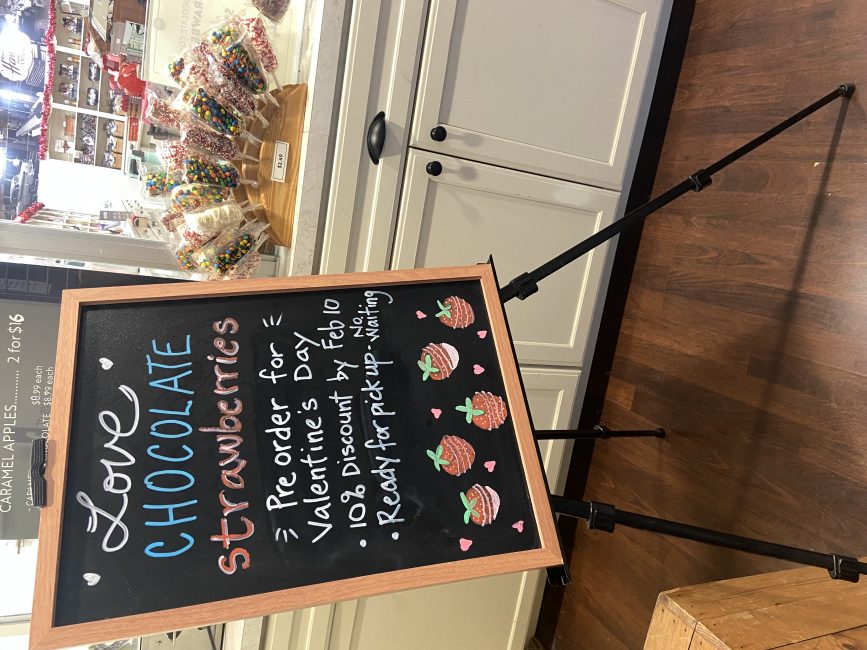 Love
CHOCOLATE
strawberries
= Pre order for =
Valentine's Day
• 10% Discount by Feb 10
• Ready for pick up - No Waiting
CARAMEL APPLES............ 2 for $16
$8.99 each
$8.99 each
$2.49